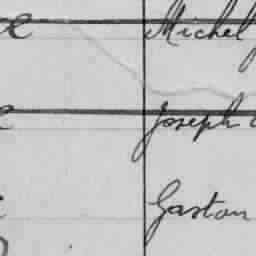 Michel
Joseph
Gaston